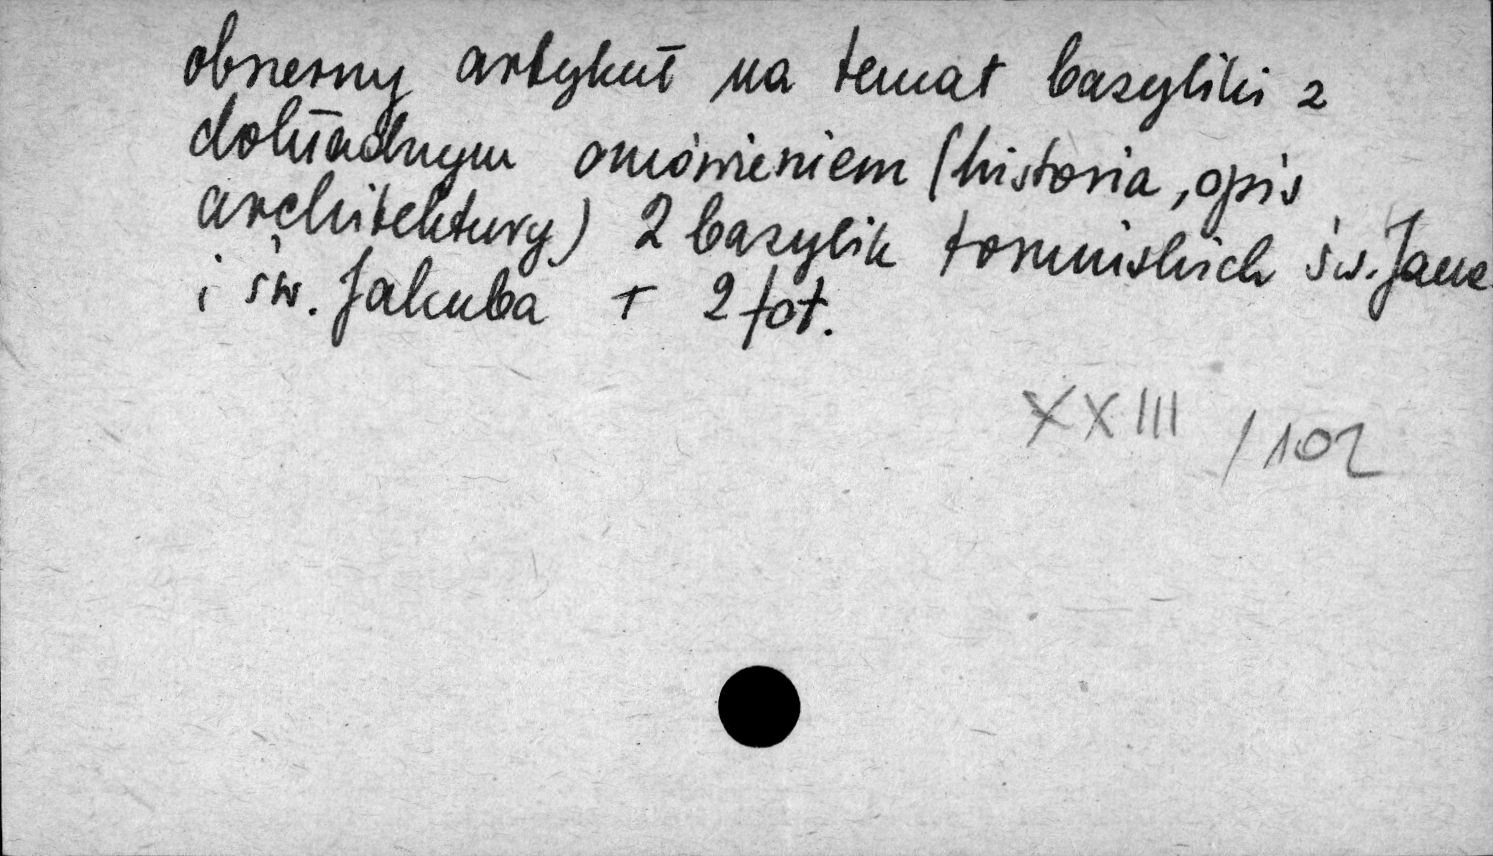 obszerny artykuł na temat bazyliki z
dokładnym omówieniem (historia, opis
architektury) 2 bazylik toruńskich św. Jana
i św. Jakuba + 2 fot.
XXIII / 102